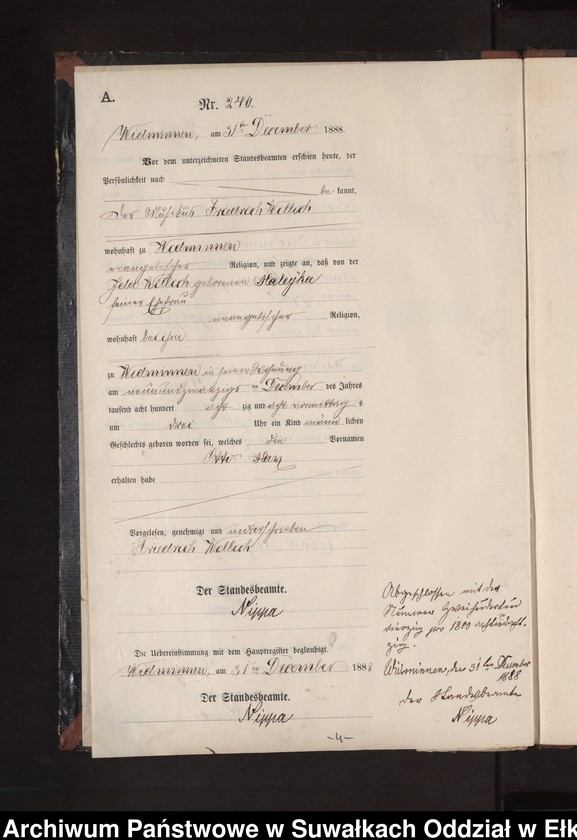 A.
Nr. 240.
Widminnen, am 31ten December 1888
Vor dem unterzeichneten Standesbeamten erschien heute, der
Persönlichkeit nach
be kannt,
der Musikus Friedrich Wollich
wohnhaft zu Widminnen
evangelischer Religion, und zeigte an, daß von der
Wollich geborenen
seiner Ehefrau
evangelischer Religion,
wohnhaft bei ihm
zu Widminnen in seiner Wohnung
am neunundzwanzigsten December des Jahres
tausend acht hundert acht zig und acht vormittags
um drei Uhr ein Kind männ lichen
Geschlechts geboren worden sei, welches die Vornamen
Otto
erhalten habe
Vorgelesen, genehmigt und unterschrieben
Friedrich Wollich
Der Standesbeamte.
Nippa
Die Uebereinstimmung mit dem Hauptregister beglaubigt.
Widminnen, am 31ten December 1888
Der Standesbeamte.
Nippa
Abgeschlossen mit der
Nummer Zweihundertund
vierzig pro 1800 achtundacht-
zig.
Widminnen, den 31ten December
1888
Der Standesbeamte
Nippa
-4-
Archiwum Państwowe w Suwałkach Oddział w Ełk